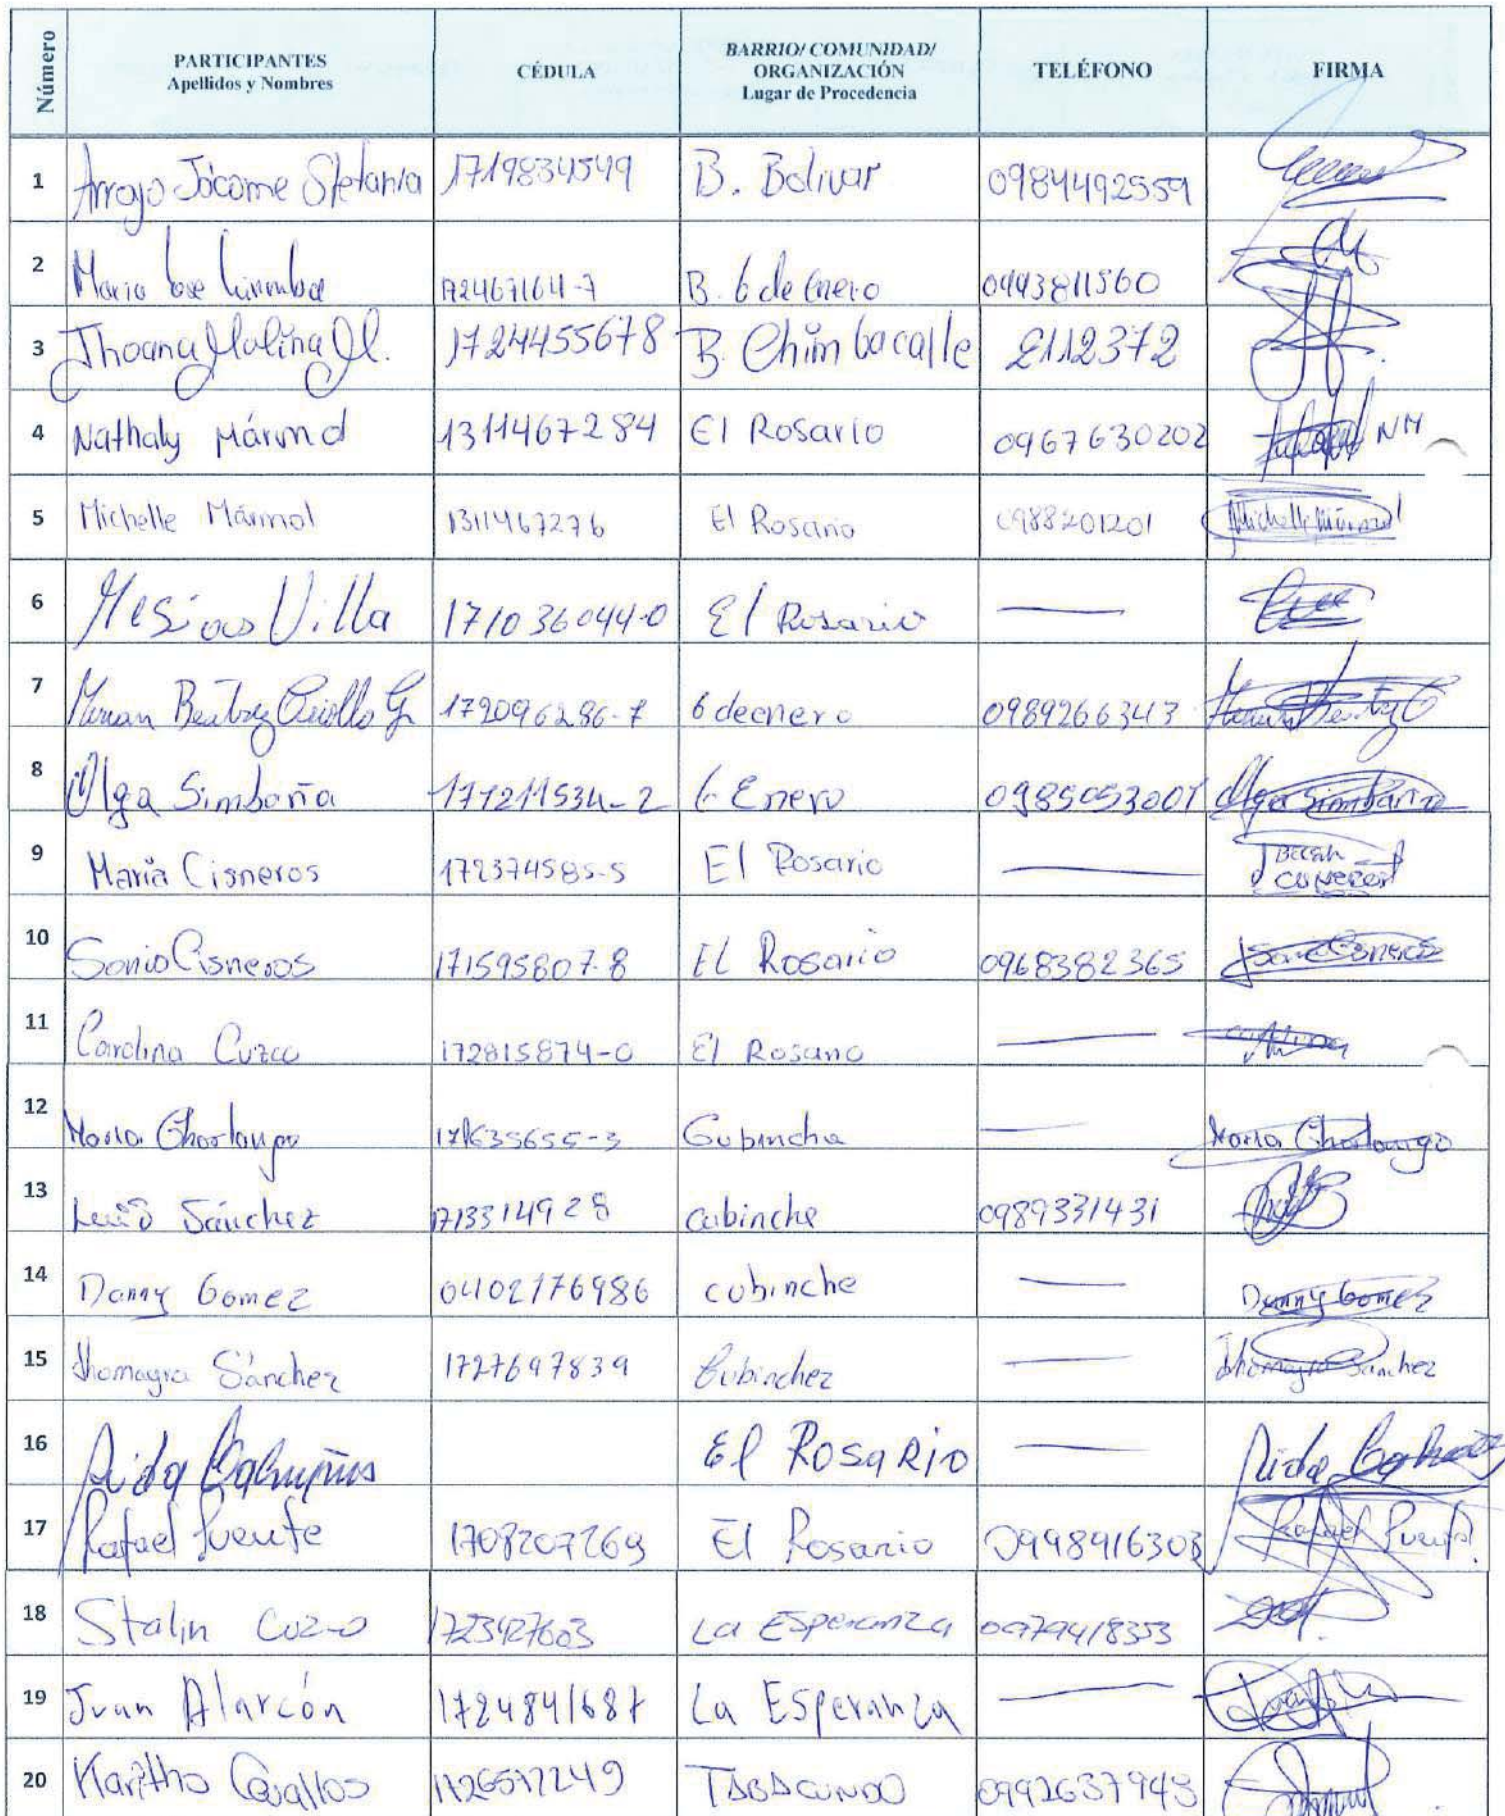 Número PARTICIPANTES CÉDULA BARRIO/ COMUNIDAD/ TELÉFONO FIRMA
Apellidos y Nombres ORGANIZACIÓN
Lugar de Procedencia
1 Arroyo Jácome Stefania 1719834549 B. Bolivar 0984492559
2 Maria Jose B. 6 de Enero
3 Jhoana Molina M. 1724455678 B. Chimbacalle 2112372
4 Nathaly Mármol 1311467284 El Rosario 0967630202 NM
5 Michelle Mármol 1311467276 El Rosario 0988201201 Michelle Mármol
6 Mesias Villa 171036044-0 El Rosario —
7 Beatriz Criollo G 172096286-7 6 de enero 0989266343
8 Olga Simbaña 171211534-2 6 Enero 0985053001 Olga Simbaña
9 Maria Cisneros 172374585-5 El Rosario — Cisneros
10 Sonia Cisneros 171595807-8 El Rosario 0968382365 Sonia Cisneros
11 Carolina Cuzco 172815874-0 El Rosario —
12 Maria Charlango Cubinche — Maria Charlango
13 Luis Sánchez 1713314928 cubinche 0989331431
14 Danny Gomez 0402176986 cubinche — Danny Gomez
15 Jhomayra Sánchez 1727697839 Cubinchez — Jhomayra Sanchez
16 Aida El Rosario — Aida
17 Rafael Puente 1708207269 El Rosario 0998916303 Rafael Puente.
18 Stalin Cuzco 1723427603 La Esperanza 0979418353
19 Juan Alarcón 1724841687 La Esperanza —
20 Karitho Cevallos TABACUNDO 0992637943